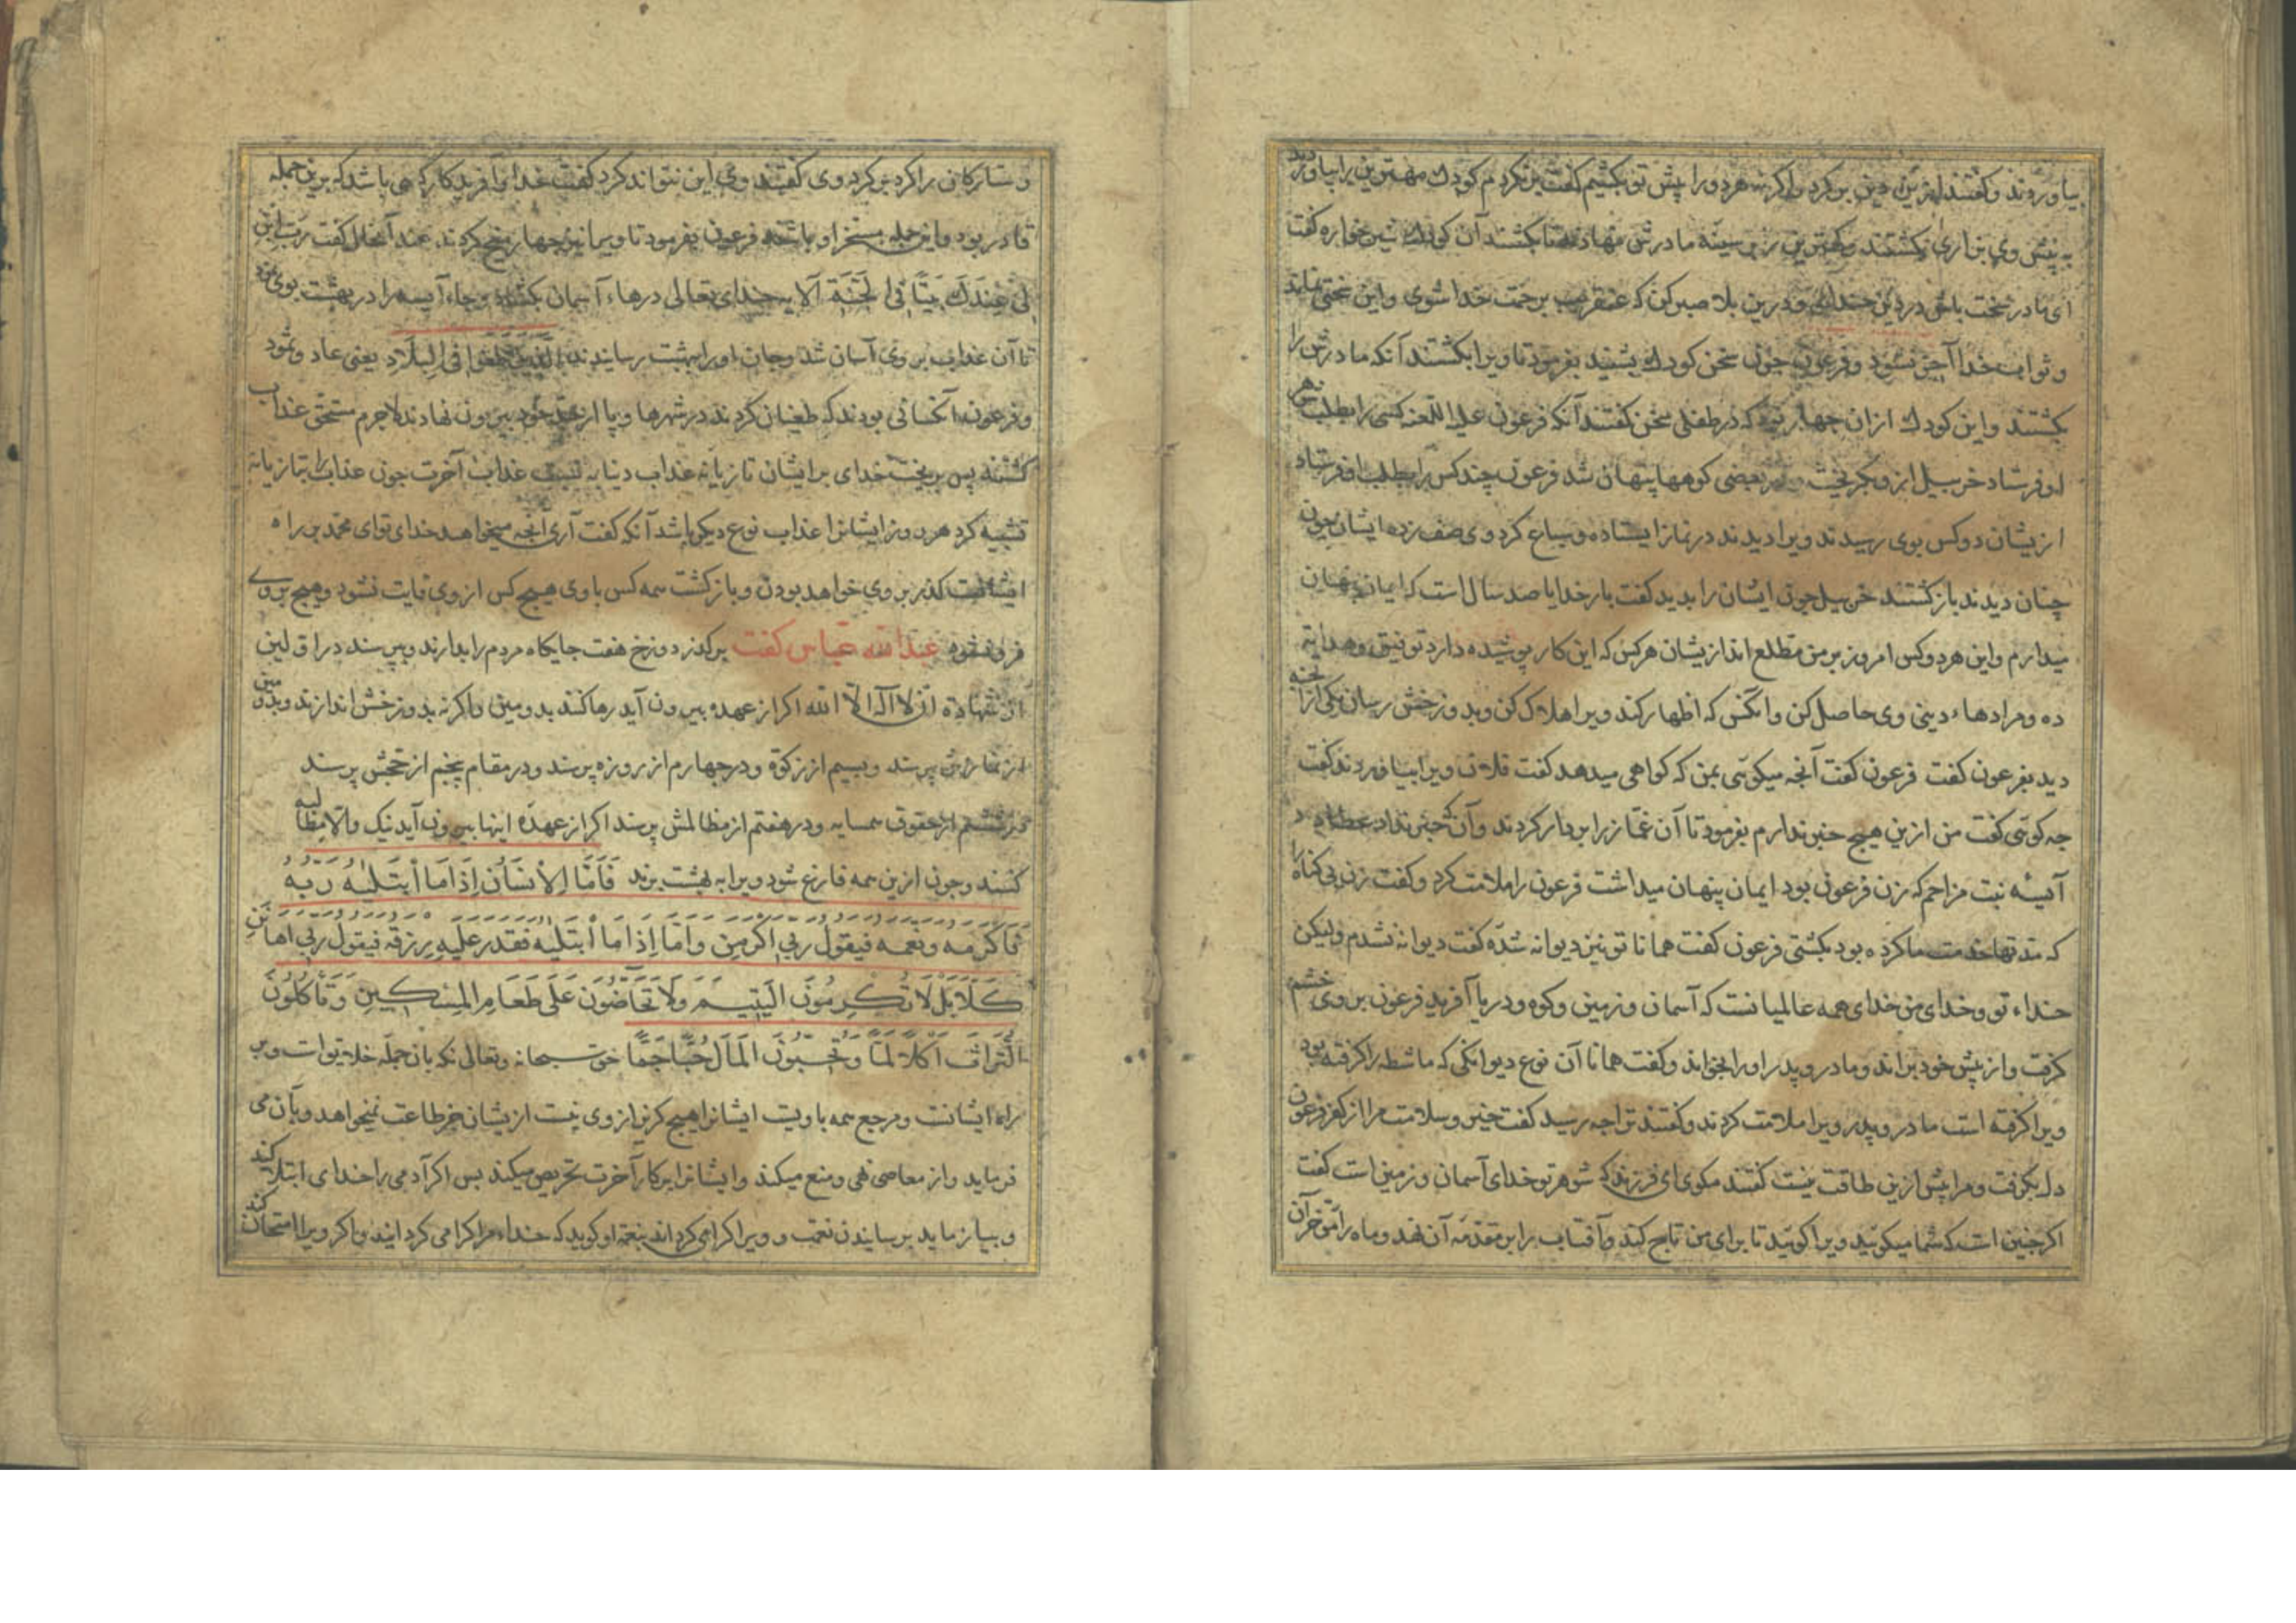 بیاوردند و گفتند ازین دین برگرد واگرنه هر دو را پیش تو بکشیم گفت برنگردم کودک مهترین را بیاوردند
به پیش وی بزاری بکشتند و کهترین بر سینه مادرش نهادند تا بکشند آن کودک شیرخواره گفت
ای مادر سخت باش در دین خدای و درین بلا صبر کن که عنقریب برحمت خدا شوی و این سختی نماند
و ثواب خدا آجر نشود و فرعون جون سخن کودک بشنید بفرمود تا ویرا بکشتند آنکه مادرش را
بکشتند و این کودک ازان جهار بود که در طفلی سخن گفتند آنکه فرعون علیه اللعنه کسی را بطلب شوهر
او فرستاد خربیل ازو بگریخت در بعضی کوهها پنهان شد فرعون چند کس را بطلب او فرستاد
ازیشان دو کس بوی رسیدند ویرا دیدند در نماز ایستاده و سباع گرد وی صف زده ایشان جون
چنان دیدند باز گشتند خربیل جون ایشان را بدید گفت بار خدایا صد سال است که ایمان پنهان
میدارم و این هر دو کس امروز بر من مطلع اند ازیشان هر کس که این کار پوشیده دارد توفیق و هدایه
ده و مرادهاء دینی وی حاصل کن و انکس که اظهار کند ویرا هلاک کن و بدوزخش رسان یکی از انجه
دید بفرعون گفت فرعون گفت آنجه میکوئی بمن که کواهی میدهد گفت فلان ویرا بیاوردند گفت
جه کوئی گفت من ازین هیچ خبر ندارم بفرمود تا آن غماز را بر دار کردند و آن که خبر نداد عطا داد
آسیه بنت مزاحم که زن فرعون بود ایمان پنهان میداشت فرعون را ملامت کرد و گفت زن بی کناه را
که مدتها خدمت ما کرده بود بکشتی فرعون گفت همانا تو نیز دیوانه شده گفت دیوانه نشدم ولیکن
خداء تو و خدای من خدای همه عالمیانست که آسمان و زمین و کوه و دریا آفرید فرعون بر وی خشم
گرفت و از پیش خود براند و مادر و پدر او را بخواند و گفت همانا آن نوع دیوانکی که ماشطه را گرفته بود
ویرا گرفته است مادر و پدر ویرا ملامت کردند و گفتند ترا جه رسید گفت خیر و سلامت مرا از کفر فرعون
دل بگرفت و مرا پیش ازین طاقت نیست گفتند مکوی ای فرزند که شوهر تو خدای آسمان و زمین است گفت
اگر جنین است که شما میکوئید ویرا کوئید تا برای من تاج کند و آفتاب را بر مقدمه آن نهد و ماه را بر مؤخر آن
و ستارکان را گرد بر گرد وی گفتند وی این نتواند کرد گفت خدا و آفریدکار کسی باشد که برین جمله
قادر بود و این جمله مسخر او باشد فرعون بفرمود تا ویرا نیز جهار میخ کردند عند آنحال گفت رب ابن
لی عندک بیتا فی الجنة الایه خدای تعالی درهاء آسمان بکشاد و جاء آسیه را در بهشت بوی نمود
تا آن عذاب بر وی آسان شد و جان او را ببهشت رسانیدند الذین طغوا فی البلاد یعنی عاد و ثمود
و فرعون انکسانی بودند که طغیان کردند در شهرها و پا از حد خود بیرون نهادند لاجرم مستحق عذاب
گشتند پس بریخت خدای بر ایشان تازیانه عذاب دنیا به نسبت عذاب آخرت جون عذاب را بتازیانه
تشبیه کرد هر روز ایشانرا عذاب نوع دیکر باشد آنکه گفت آری آنجه میخواهد خدای توای محمد بر راه
ایشانست گذر بر وی خواهد بودن و باز گشت همه کس با وی هیچ کس از وی فایت نشود و هیچ بر وی
فرو نشود عبد الله عباس گفت بر کذر دوزخ هفت جایکاه مردم را بدارند و بپرسند در اولین
از شهادة ان لا اله الا الله اگر از عهده بیرون آید رها کنند بدومین واگرنه بدوزخش اندازند و بدومین
از نمازش پرسند و بسیم از زکوة و در جهارم از روزه پرسند و در مقام پنجم از حجش پرسند
در ششم از حقوق همسایه و در هفتم از مظالمش پرسند اگر از عهده اینها بیرون آید نیک والا مطالبه
کنند وجون ازین همه فارغ شود ویرا به بهشت برند فَأَمَّا الْإِنْسَانُ إِذَا مَا ابْتَلَيٰهُ رَبُّهُ
فَأَكْرَمَهُ وَنَعَّمَهُ فَيَقُولُ رَبِّي أَكْرَمَنِ وَأَمَّا إِذَا مَا ابْتَلَيٰهُ فَقَدَرَ عَلَيْهِ رِزْقَهُ فَيَقُولُ رَبِّي أَهَانَنِ
كَلَّا بَلْ لَا تُكْرِمُونَ الْيَتِيمَ وَلَا تَحَاضُّونَ عَلَى طَعَامِ الْمِسْكِينِ وَتَأْكُلُونَ
التُّرَاثَ أَكْلًا لَمًّا وَتُحِبُّونَ الْمَالَ حُبًّا جَمًّا حق سبحانه و تعالی که بازن جمله خلایق است و بر
راه ایشانست و مرجع همه باویست ایشانرا هیچ گریز از وی نیست ازیشان جز طاعت نمیخواهد و بآن می
فرماید و از معاصی نهی و منع میکند و ایشانرا بر کار آخرت تحریص میکند بس اگر آدمی را خدای ابتلا کند
و بیازماید برسانیدن نعمت و ویرا گرامی گرداند بنعمت او کوید که خداء مرا گرامی گردانید و اگر ویرا امتحان کند